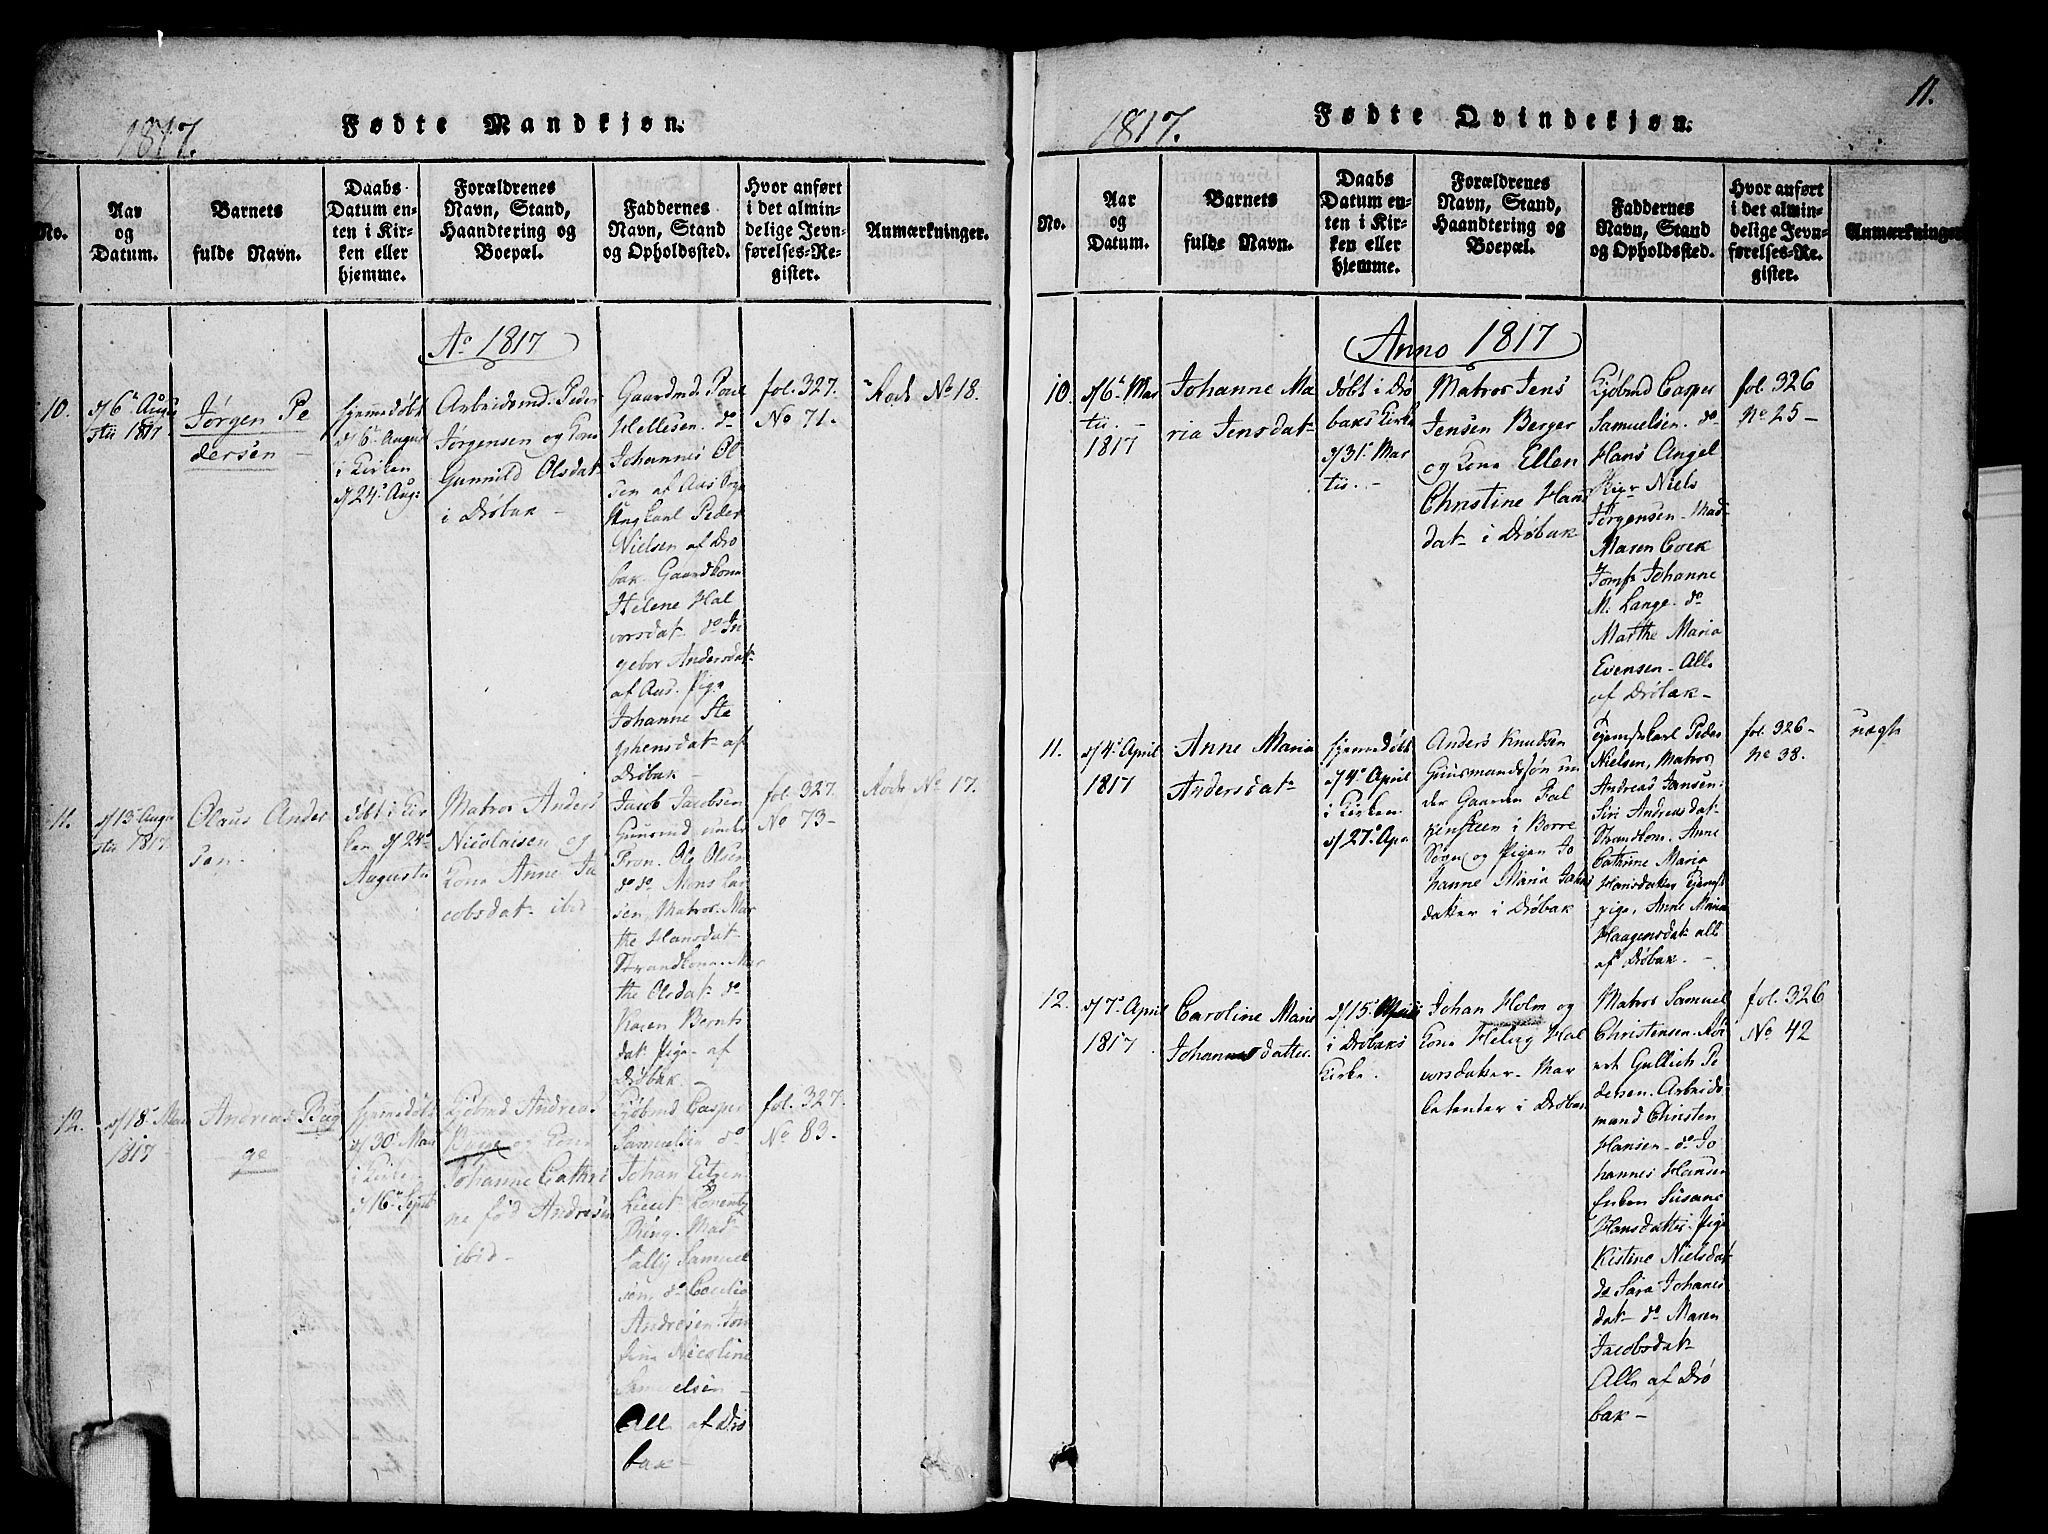 1817.
Fødte Mandkjøn.
No.
Aar
og
Datum.
Barnets
fulde Navn.
Daabs
Datum en-
ten i Kir-
ken eller
hjemme.
Forældrenes
Navn, Stand,
Haandtering og
Boepæl.
Faddernes
Navn, Stand
og Opholdssted.
Hvor anført
i det almin-
delige Jevn-
førelses-Re-
gister.
Anmærkninger.
Ao 1817
10.
d/6 Augu
stii 1817.
Jørgen Pe
dersen
hjemmedøbt
d/6 August
i Kirken
d/24 Aug:
Arbeidsmd. Peder
Jørgensen og Kone
Gunnild Olsdat
i Drøbak
Gaardmd. Poul
Hellesen. do
Johannes Ol
sen af Aas Sogn
Ungkarl Peder
Nielsen af Drø
bak. Gaardkone
Helene Hal
vorsdat. do In
gebor Andersdat
af Aas. Pige
Johanne Ste
phensdat af
Drøbak
fol. 327.
No 71.
Rode No 18.
11.
d/13 Augu
stii 1817.
Olaus Ander
sen
døbt i Kir
ken d/24
Augustii
Matros Anders
Nicolaisen og
Kone Anne Ja
cobsdat ibid
Jacob Jacobsen
Huusmd. under
Pron. Ole Olsen
do do. Mons Lar
sen, Matros. Mar
the Hansdat
Strandkone. Mar
the Olsdat do
Karen Bernts
dat Pige af
Drøbak
fol. 327.
No 73
Rode No 17.
12.
d/18 Mai
1817
Andreas Bug
ge
hjemmedøbt
d/30 Mai
i Kirken
d/16 Sept
Kjøbmd Andreas
Bugge og Kone
Johanne Cathri
ne fød Andresen
ibid
Kjøbmd Casper
Samuelsen do
Johan
Lieut
Ring. Mad
Sally Samuel
sen, do Cecilie
Andresen. Jom
fru Nicoline
Samuelsen
Alle af Drø
bak
fol. 327.
No 83.
11.
1817.
Fødte Qvindekjøn.
No.
Aar
og
Datum.
Barnets
fulde Navn.
Daabs
Datum en-
ten i Kir-
ken eller
hjemme.
Forældrenes
Navn, Stand,
Haandtering og
Boepæl.
Faddernes
Navn, Stand
og Opholdsted.
Hvor anført
i det almin-
delige Jevn-
førelses-Re-
gister.
Anmærkninger
Anno 1817
10.
d/6 Mar
tii.
1817
Johanne Ma
ria Jensdat
døbt i Drø
baks Kirke
d/31 Mar
tii.
Matros Jens
Jensen Berger
og Kone Ellen
Christine Hans
dat i Drøbak
Kjøbmd Casper
Samuelsen. do
Hans Angel
Niels
Jørgensen. Mad
Maren Cock
Jomfr Johanne
M. Lange. do
Marthe Maria
Evensen. Alle
af Drøbak
fol. 326
No 25
11.
d/4 April
1817
Anne Maria
Andersdat
hjemmedøbt
d/4 April
i Kirken
d/27 Apr.
Anders Knudsen
Huusmandssøn un
der Gaarden Fal
kensteen i Borre
Sogn og Pigen Jo
hanne Maria
datter i Drøbak
Tjenestekarl Peder
Nielsen, Matros
Andreas Jansen.
Siri Andreasdat
Strandkone. Anne
Cathrine Maria
Hansdatter Tjeneste
pige, Anne Maria
Haagensdat alle
af Drøbak.
fol. 326
No 38.
uægte
12.
d/7 April
1817
Caroline Marie
Johannsdatter.
d/15
i Drøbaks
Kirke.
Johan Holm og
Kone Helvig Hal
vorsdatter. Mar
ketenter i Drøbak
Matros Samuel
Christensen.
Gullich Pe
dersen. Arbeids
mand Christen
Hansen. do Jo
hannes Hansen
Enken Susane
Hansdatter. Pige
Kistine Nielsdat
do Sara Johanes
dat do Maren
Jacobsdat
Alle af Drø
bak
fol. 326
No 42